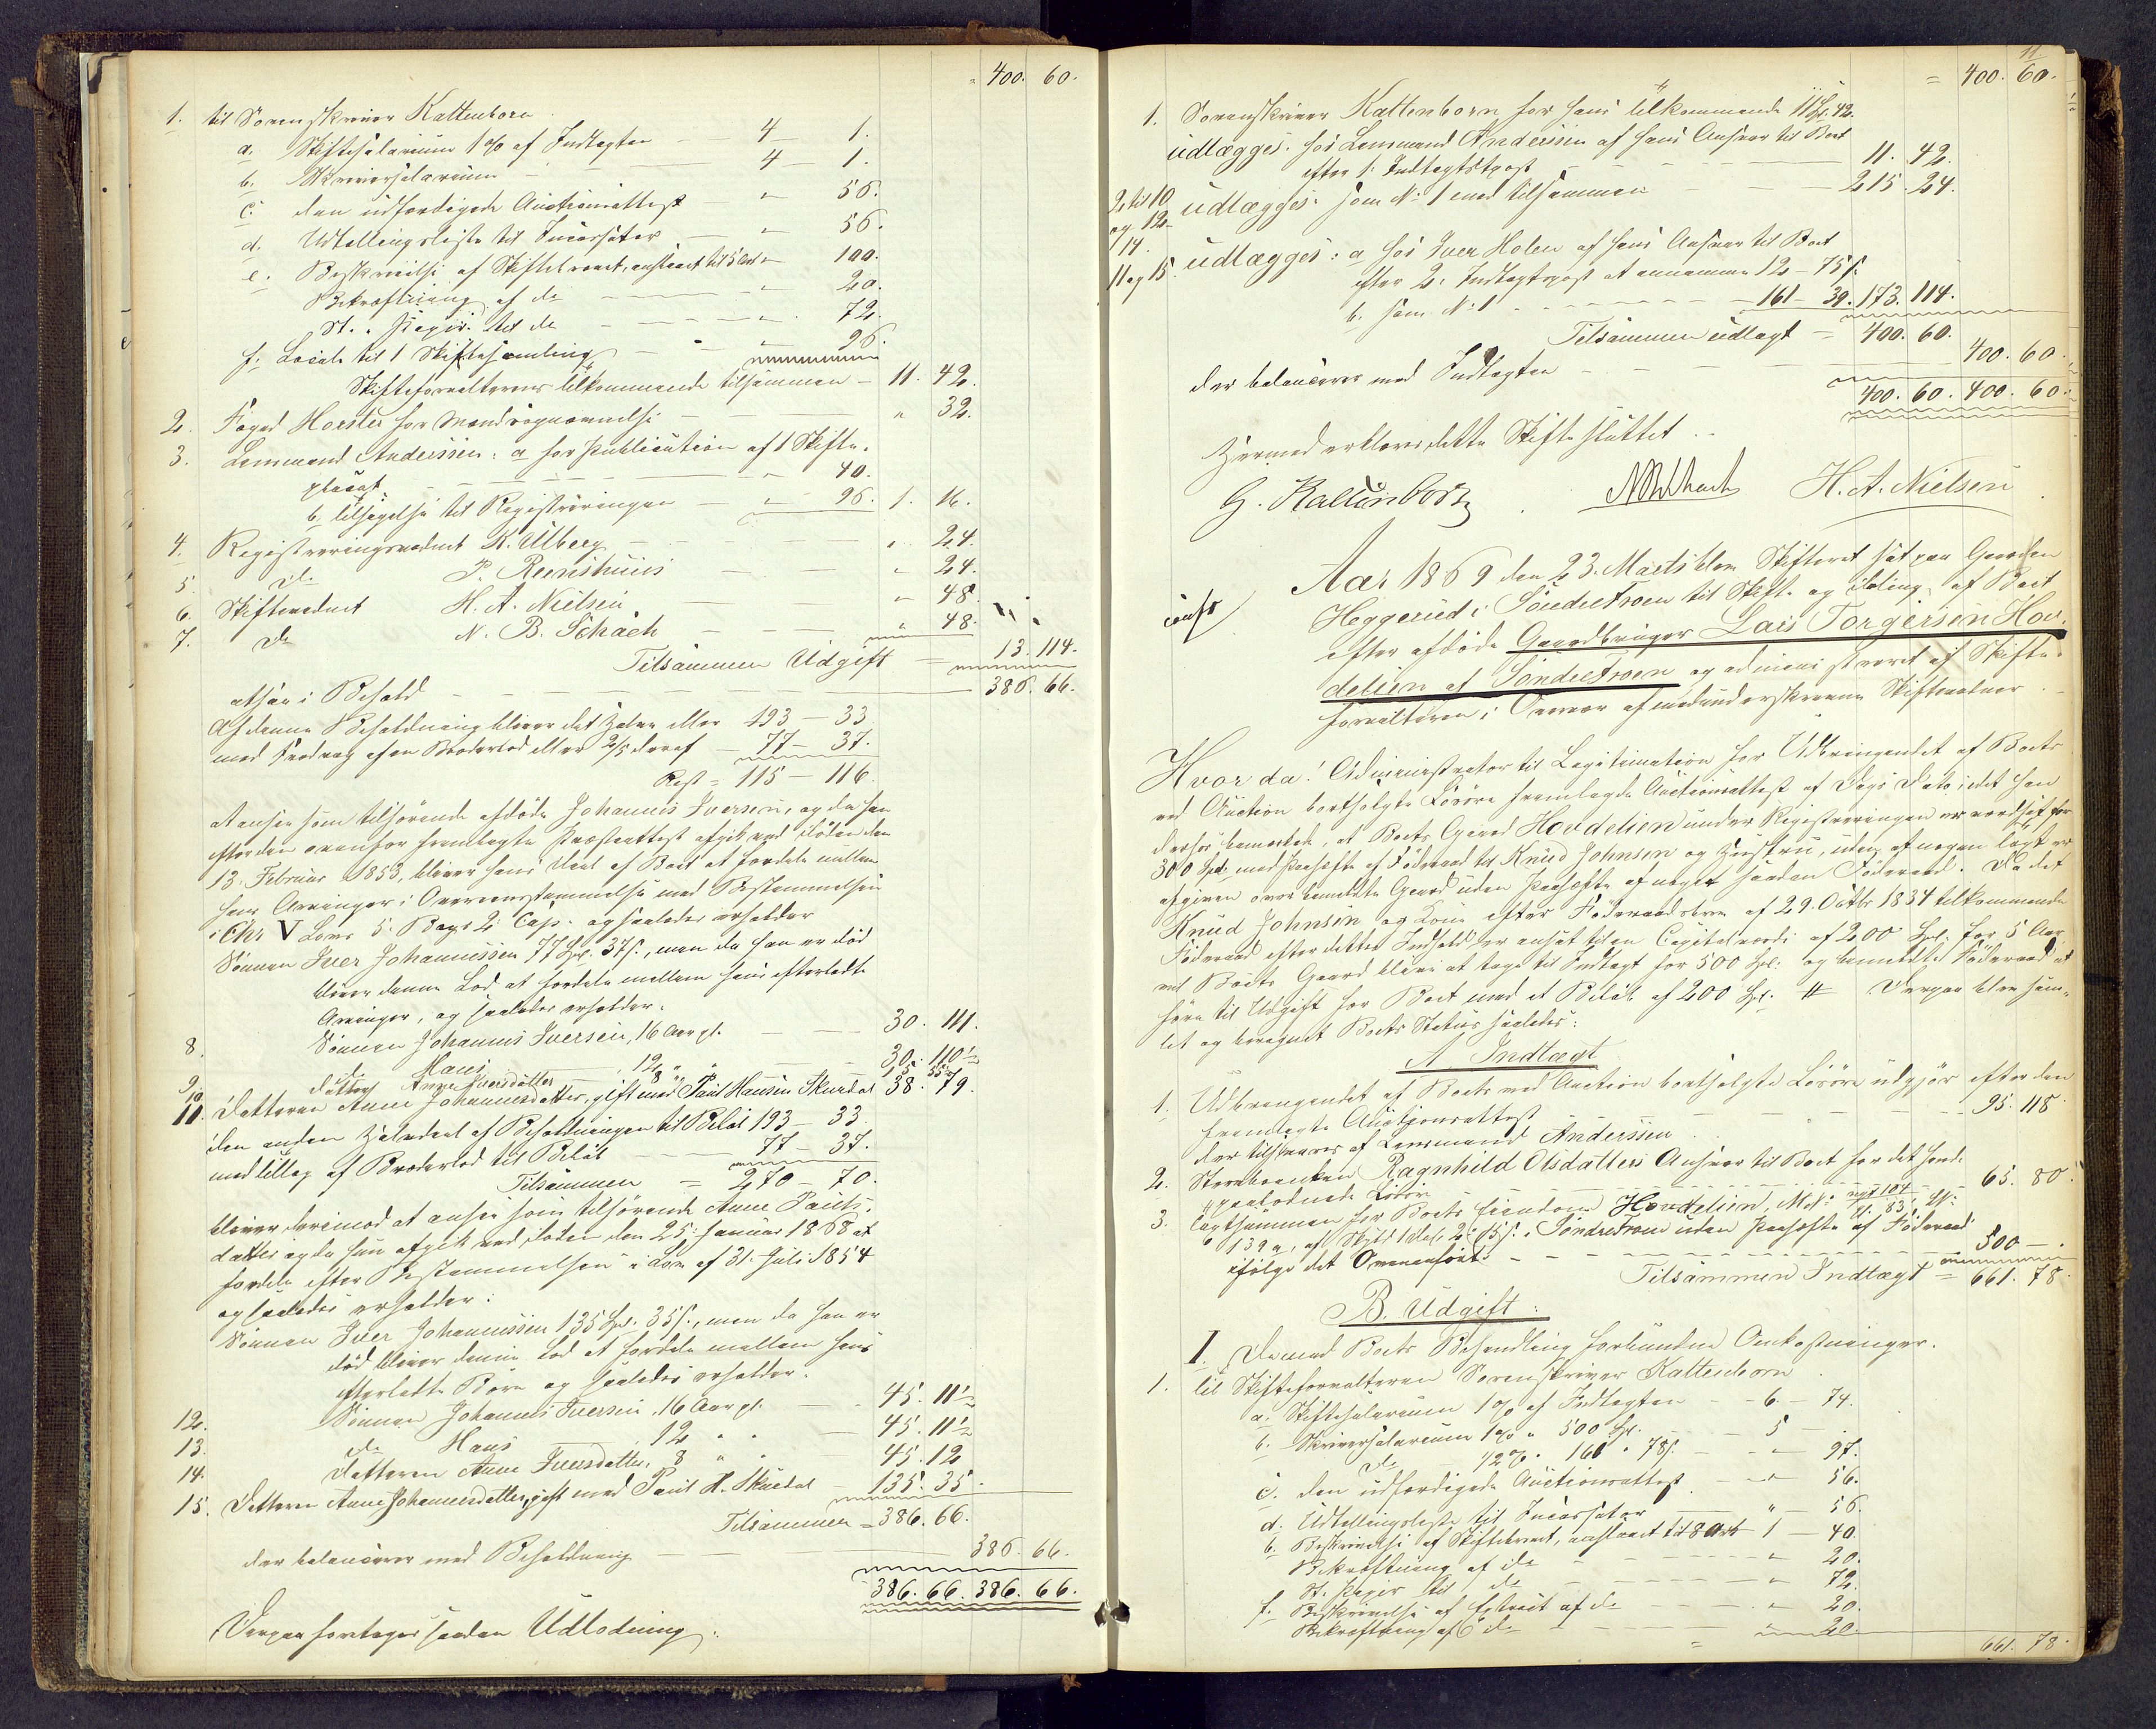 " 400. 60.
1. til Sorenskriver Kattenborn
a. Skiftesalarium 1 % af Indtægten — 4 — 1.
b. Skriversalarium — 4 — 1.
c. den udfærdigede Auctionsattest — " 56.
d. Udtellingsliste til Incassator — " 56.
e. Beskrivelse af Skiftebrevet, anslaaet til 5 Ark " 100.
Bekræftning af do — " 20.
St. Papir til do — " 72.
f. Locale til 1 Skiftesamling — " 96.
Skifteforvalterens tilkommende tilsammen — 11. 42.
2. Foged Horster for Mændsopnævnelse — " 32.
3. Lensmand Anderssen: a for Publication af 1 Skifte-
placat — " 40.
b tilsigelse til Registreringen — " 96. 1. 16.
4. Registreringsmand K. Ulberg — " 24.
5. do P. Reinshuus — " 24.
6. Skiftemand H. A. Nielsen — " 48.
7. do N. B. Schach — " 48.
Tilsammen Udgift — 13. 114.
altsaa i Behold — 386. 66.
Af denne Beholdning bliver det Halve eller 193 — 33
med Fradrag af en Broderlod eller 2/5 deraf — 77 — 37.
Rest = 115 — 116.
at ansee som tilhørende afdøde Johannes Iversen, og da han
efter den ovenfor fremlagte Præsteattest afgik ved Døden den
13. Februar 1853, bliver hans Deel af Boet at fordele mellem
hans Arvinger i Overeensstemmelse med Bestemmelsen
i Chr V Lovs 5. Bogs 2. Cap. og saaledes erholder
Sønnen Iver Johannessen 77 Spd. 37 s., men da han er død
bliver denne Lod at fordele mellem hans efterladte
Arvinger, og saaledes erholder:
8. Sønnen Johannes Iversen, 16 Aar gl. — 30. 111.
9. do Hans 12 " " — 30. 110½
10. Datteren Anne Iversdatter 8 " " — 15. 55½
11. Datteren Anne Johannesdatter, gift med Paul Hansen Skurdal 38. 79.
den anden Halvdeel af Beholdningen til Beløb 193 — 33
med tillæg af Broderlod til Beløb — 77 — 37.
Tilsammen = 270 — 70.
bliver derimod at ansee som tilhørende Anne Pauls-
datter og da hun afgik ved Døden den 25. Januar 1868 at
fordele efter Bestemmelsen i Lov af 31. Juli 1854
og saaledes erholder:
Sønnen Iver Johannessen 135 Spd. 35 s., men da han er
død bliver denne Lod at fordele mellem hans
efterladte Børn og saaledes erholder:
12. Sønnen Johannes Iversen, 16 Aar gl. — 45. 11½
13. do Hans 12 " " — 45. 11½
14. Datteren Anne Iversdatter, 8 " " 45. 12
15. Datteren Anne Johannesdatter, gift med Paul H. Skurdal — 135. 35.
Tilsammen = 386. 66.
der balancerer med Beholdning — 386. 66.
386. 66. 386. 66.
Derpaa foretoges saadan Udlodning:
11
= 400. 60.
1. Sorenskriver Kattenborn for hans tilkommende 11 Spd. 42
udlægges: hos Lensmand Anderssen af hans Ansvar til Boet
efter 1. Indtægtspost — 11. 42.
2 til 10
og 12-14. udlægges: som No. 1 med tilsammen — 215. 24.
11 og 15. udlægges: a hos Iver Holen af hans Ansvar til Boet
efter 2. Indtægtspost at annamme 12 — 75 s.
b. som No. 1 — 161 — 39. 173. 114.
Tilsammen udlagt = 400. 60.
der balancerer med Indtægten — 400. 60.
400. 60. 400. 60.
Hermed erklæres dette Skifte sluttet.
G. Kattenborn. NBSchach H. A. Nielsen
Aar 1869 den 23. Marts blev Skifteret sat paa Gaarden
Heggerud i Søndre Froen til Skifte og Deling af Boet
efter afdøde Gaardbruger Lars Torgersen Hov-
delien af Søndre Froen og administreret af Skifte-
forvalteren i Overvær af medunderskrevne Skiftemænd.
Hvor da: Administrator til Legitimation for Udbringendet af Boets
ved Auction bortsolgte Løsøre fremlagde Auctionsattest af Dags Dato idet han
derfor bemærkede, at Boets Gaard Hovdelien under Registreringen er værdsat for
300 Spd. med Paahefte af Føderaad til Knud Johnsen og Hustru, uden at nogen Taxt er
afgiven over bemeldte Gaard uden Paahefte af noget saadan Føderaad. Da det
Knud Johnsen og Kone efter Føderaadsbrev af 29. Octbr 1834 tilkommende
Føderaad efter dettes Indhold er ansat til en Capitalværdi af 200 Spd. for 5 Aar
vil Boets Gaard blive at tage til Indtægt for 500 Spd. og bemeldte Føderaad at
føre til Udgift for Boet med et Beløb af 200 Spd. # Derpaa blev sam-
let og beregnet Boets Status saaledes:
A. Indtægt
1. Udbringendet af Boets ved Auction bortsolgte Løsøre udgjør efter den
fremlagte Auctionsattest — 95. 118
der tilsvares af Lensmand Anderssen
2. Stervboenken Ragnhild Olsdatters Ansvar til Boet for det hende
paalodnede Løsøre — 65. 80.
3. Taxtsummen for Boets Eiendom Hovdelien, Mat: nyt 104
139a, af Skyld 1 Daler 2 15 s. i Søndre Froen uden Paahefte af Føderaad
ifølge det Ovenanførte — 500 —
Tilsammen Indtægt = 661. 78.
B. Udgift:
I. De med Boets Behandling forbundne Omkostninger.
1. til Skifteforvalteren Sorenskriver Kattenborn
a. Skiftesalarium 1 % af Indtægten — 6. — 74.
b. Skriversalarium 1 % " 500 Spd. — 5
do ½ % " 161 " 78 s. — " — 97.
c. den udfærdigede Auctionsattest — " 56.
d. Udtellingsliste til Incassator — " — 56.
e. Beskrivelse af Skiftebrevet, anslaaet til 8 Ark 1 — 40
Bekræftning af do — " 20.
St. Papir til do — " 72.
f. Beskrivelse af Extract af do — " 20.
Bekræftning af do — " 20
= 661. 78.